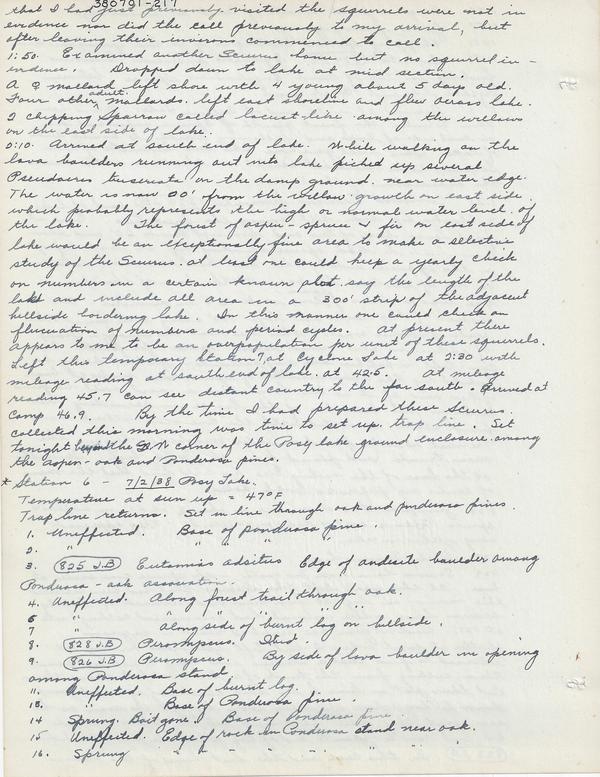 380791-217
that I had just previously visited the squirrels were not in
evidence nor did the call previously to my arrival, but
after leaving their environs commenced to call.
1:50. Examined another Sciurus home but no squirrel in-
evidence. Dropped down to lake at mid section.
A ♀ mallard left shore with 4 young about 5 days old.
Four other adult mallards left east shoreline and flew across lake.
2 chipping Sparrow called locust-like among the willows
on the east side of lake.
0:10. Arrived at south end of lake. While walking on the
lava boulders running out into lake picked up several
Pseudacris triseriata on the damp ground near water edge.
The water is now 00' from the willow growth on east side
which probably represents the high or normal water level of
the lake. The forest of aspen - spruce & fir on east side of
lake would be an exceptionally fine area to make a selective
study of the Sciurus. at least one could keep a yearly check
on numbers in a certain known plot say the length of the
lake and include all area in a 300' strip of the adjacent
hillside bordering lake. In this manner one could check on
flucuation of numbers and period cycles. At present there
appears to me to be an overpopulation per unit of these squirrels.
Left this temporary Station 7, at Cyclone Lake at 2:30 with
mileage reading at south end of lake at 42.5. At mileage
reading 45.7 can see distant country to the far south. Arrived at
Camp 46.9. By the time I had prepared these Sciurus
collected this morning was time to set up trap line. Set
tonight beyond the N corner of the Posy lake ground enclosure among
the aspen - oak and Ponderosa pines.
* Station 6 - 7/2/38 Posy Lake.
Temperature at sun up = 47°F
Trap line returns. Set in line through oak and ponderosa pines.
1. Uneffected. Base of ponderosa pine.
2. " " " "
3. 825 J.B Eutamias adsitus Edge of andesite boulder among
Ponderosa - oak association.
4. Uneffected. Along forest trail through oak.
5 " " " " "
7 " Along side of burnt log on hillside.
8. 828 J.B Peromyscus.
9. 826 J.B Peromyscus. By side of lava boulder in opening
among Ponderosa stand.
11. Uneffected. Base of burnt log.
13. " Base of Ponderosa pine.
14 Sprung. Bait gone. Base of Ponderosa pine.
15 Uneffected. Edge of rock in Ponderosa stand near oak.
16. Sprung " " " " " "